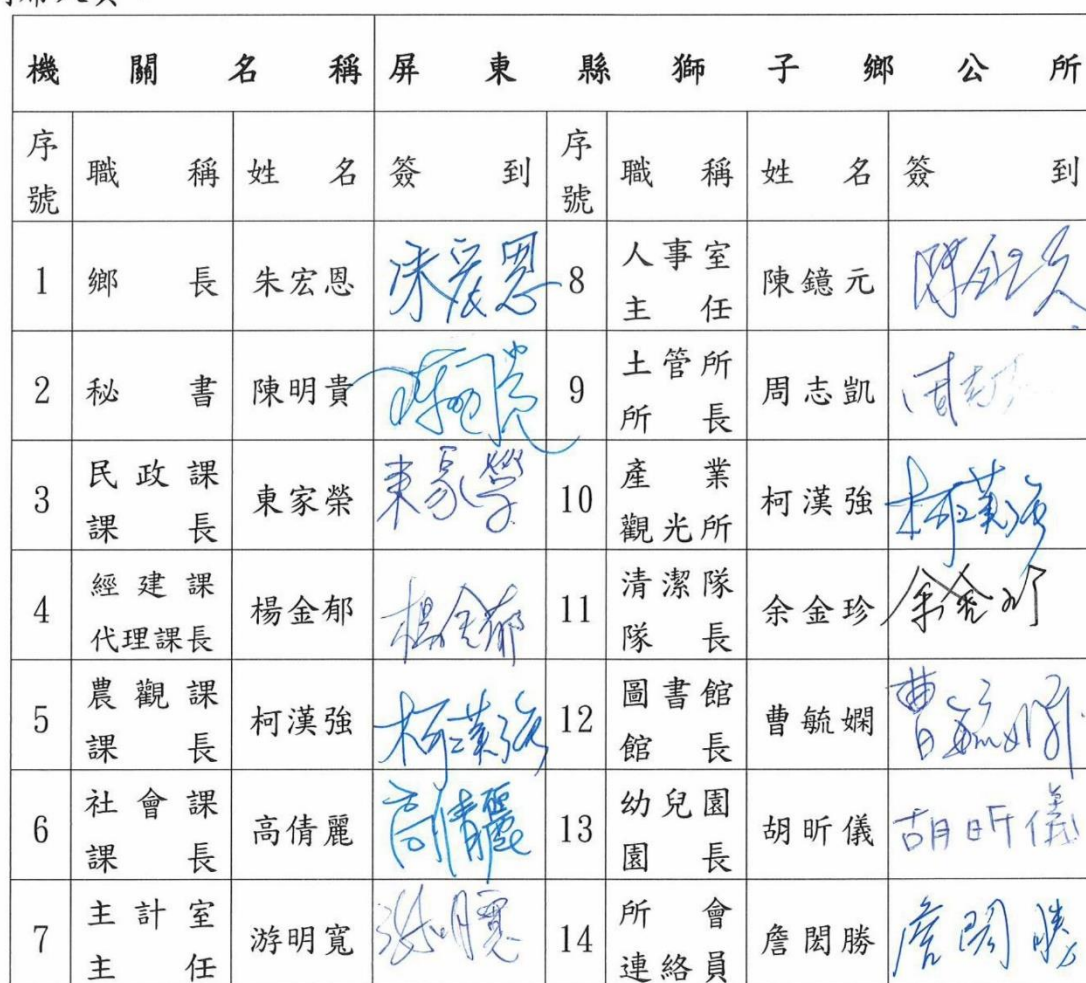 機關名稱 屏東縣獅子鄉公所
序號 職稱 姓名 簽到 序號 職稱 姓名 簽到
1 鄉長 朱宏恩 朱宏恩 8 人事室主任 陳鐿元 陳鐿元
2 秘書 陳明貴 陳明貴 9 土管所所長 周志凱 周志凱
3 民政課課長 東家榮 東家榮 10 產業觀光所 柯漢強 柯漢強
4 經建課代理課長 楊金郁 楊金郁 11 清潔隊隊長 余金珍 余金珍
5 農觀課課長 柯漢強 柯漢強 12 圖書館館長 曹毓嫻 曹毓嫻
6 社會課課長 高倩麗 高倩麗 13 幼兒園園長 胡昕儀 胡昕儀
7 主計室主任 游明寬 游明寬 14 所會連絡員 詹閎勝 詹閎勝